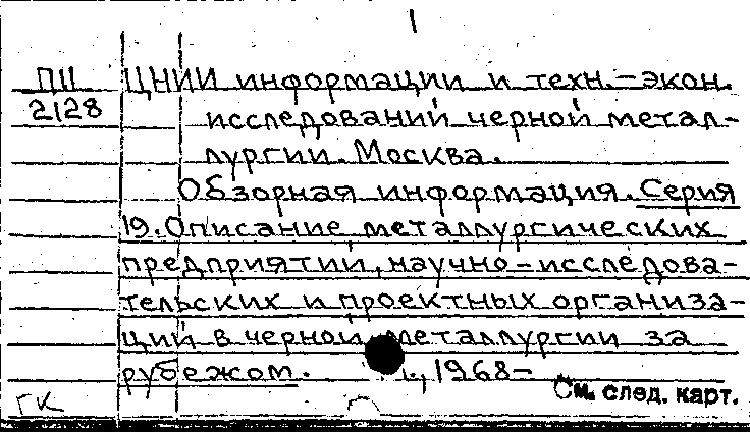 1
ПII ЦНИИ информации и техн.-экон.
2128 исследований черной метал-
лургии. Москва.
Обзорная информация. Серия
19. Описание металлургических
предприятий, научно-исследова-
тельских и проектных организа-
ций в черной металлургии за
рубежом. 1968-
См. след. карт.
ГК